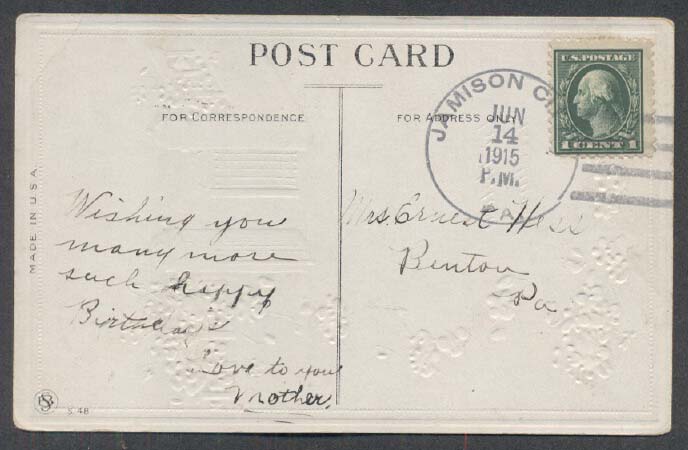 POST CARD
FOR CORRESPONDENCE
FOR ADDRESS ONLY
U.S. POSTAGE
1 CENT 1
JAMISON CITY
JUN
14
1915
P.M.
PA.
MADE IN U.S.A.
Wishing you
many more
such happy
Birthdays
Love to you
Mother.
Mrs. Ernest Hess
Benton
Pa
S. 48